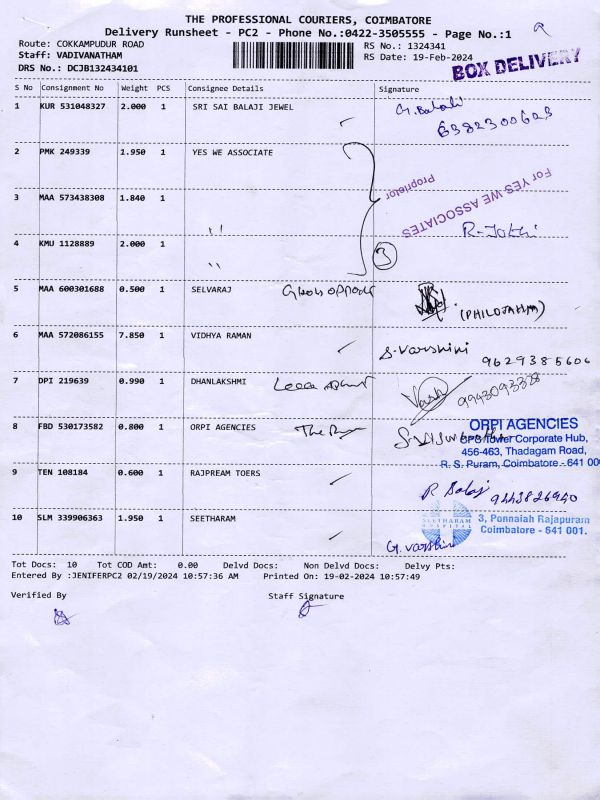 THE PROFESSIONAL COURIERS, COIMBATORE
Delivery Runsheet - PC2 - Phone No.:0422-3505555 - Page No.:1
Route: COKKAMPUDUR ROAD
RS No.: 1324341
Staff: VADIVANATHAM
RS Date: 19-Feb-2024
DRS No.: DCJB132434101
BOX DELIVERY
S No Consignment No Weight PCS Consignee Details Signature
1 KUR 531048327 2.000 1 SRI SAI BALAJI JEWEL G. Balaji
6382300623
2 PMK 249339 1.950 1 YES WE ASSOCIATE
For YES WE ASSOCIATES
Proprietor
3 MAA 573438308 1.840 1
,,
4 KMU 1128889 2.000 1
,,
3
5 MAA 600301688 0.500 1 SELVARAJ
6 MAA 572086155 7.850 1 VIDHYA RAMAN S. Varshini
9629385606
7 DPI 219639 0.990 1 DHANLAKSHMI
9943093328
8 FBD 530173582 0.800 1 ORPI AGENCIES
ORPI AGENCIES
Tower Corporate Hub,
456-463, Thadagam Road,
R. S. Puram, Coimbatore - 641 00
9 TEN 108184 0.600 1 RAJPREAM TOERS R. Balaji 9443826940
10 SLM 339906363 1.950 1 SEETHARAM
SEETHARAM
HOSPITAL
3, Ponnaiah Rajapuram
Coimbatore - 641 001.
G. Varshini
Tot Docs: 10 Tot COD Amt: 0.00 Delvd Docs: Non Delvd Docs: Delvy Pts:
Entered By :JENIFERPC2 02/19/2024 10:57:36 AM Printed On: 19-02-2024 10:57:49
Verified By Staff Signature